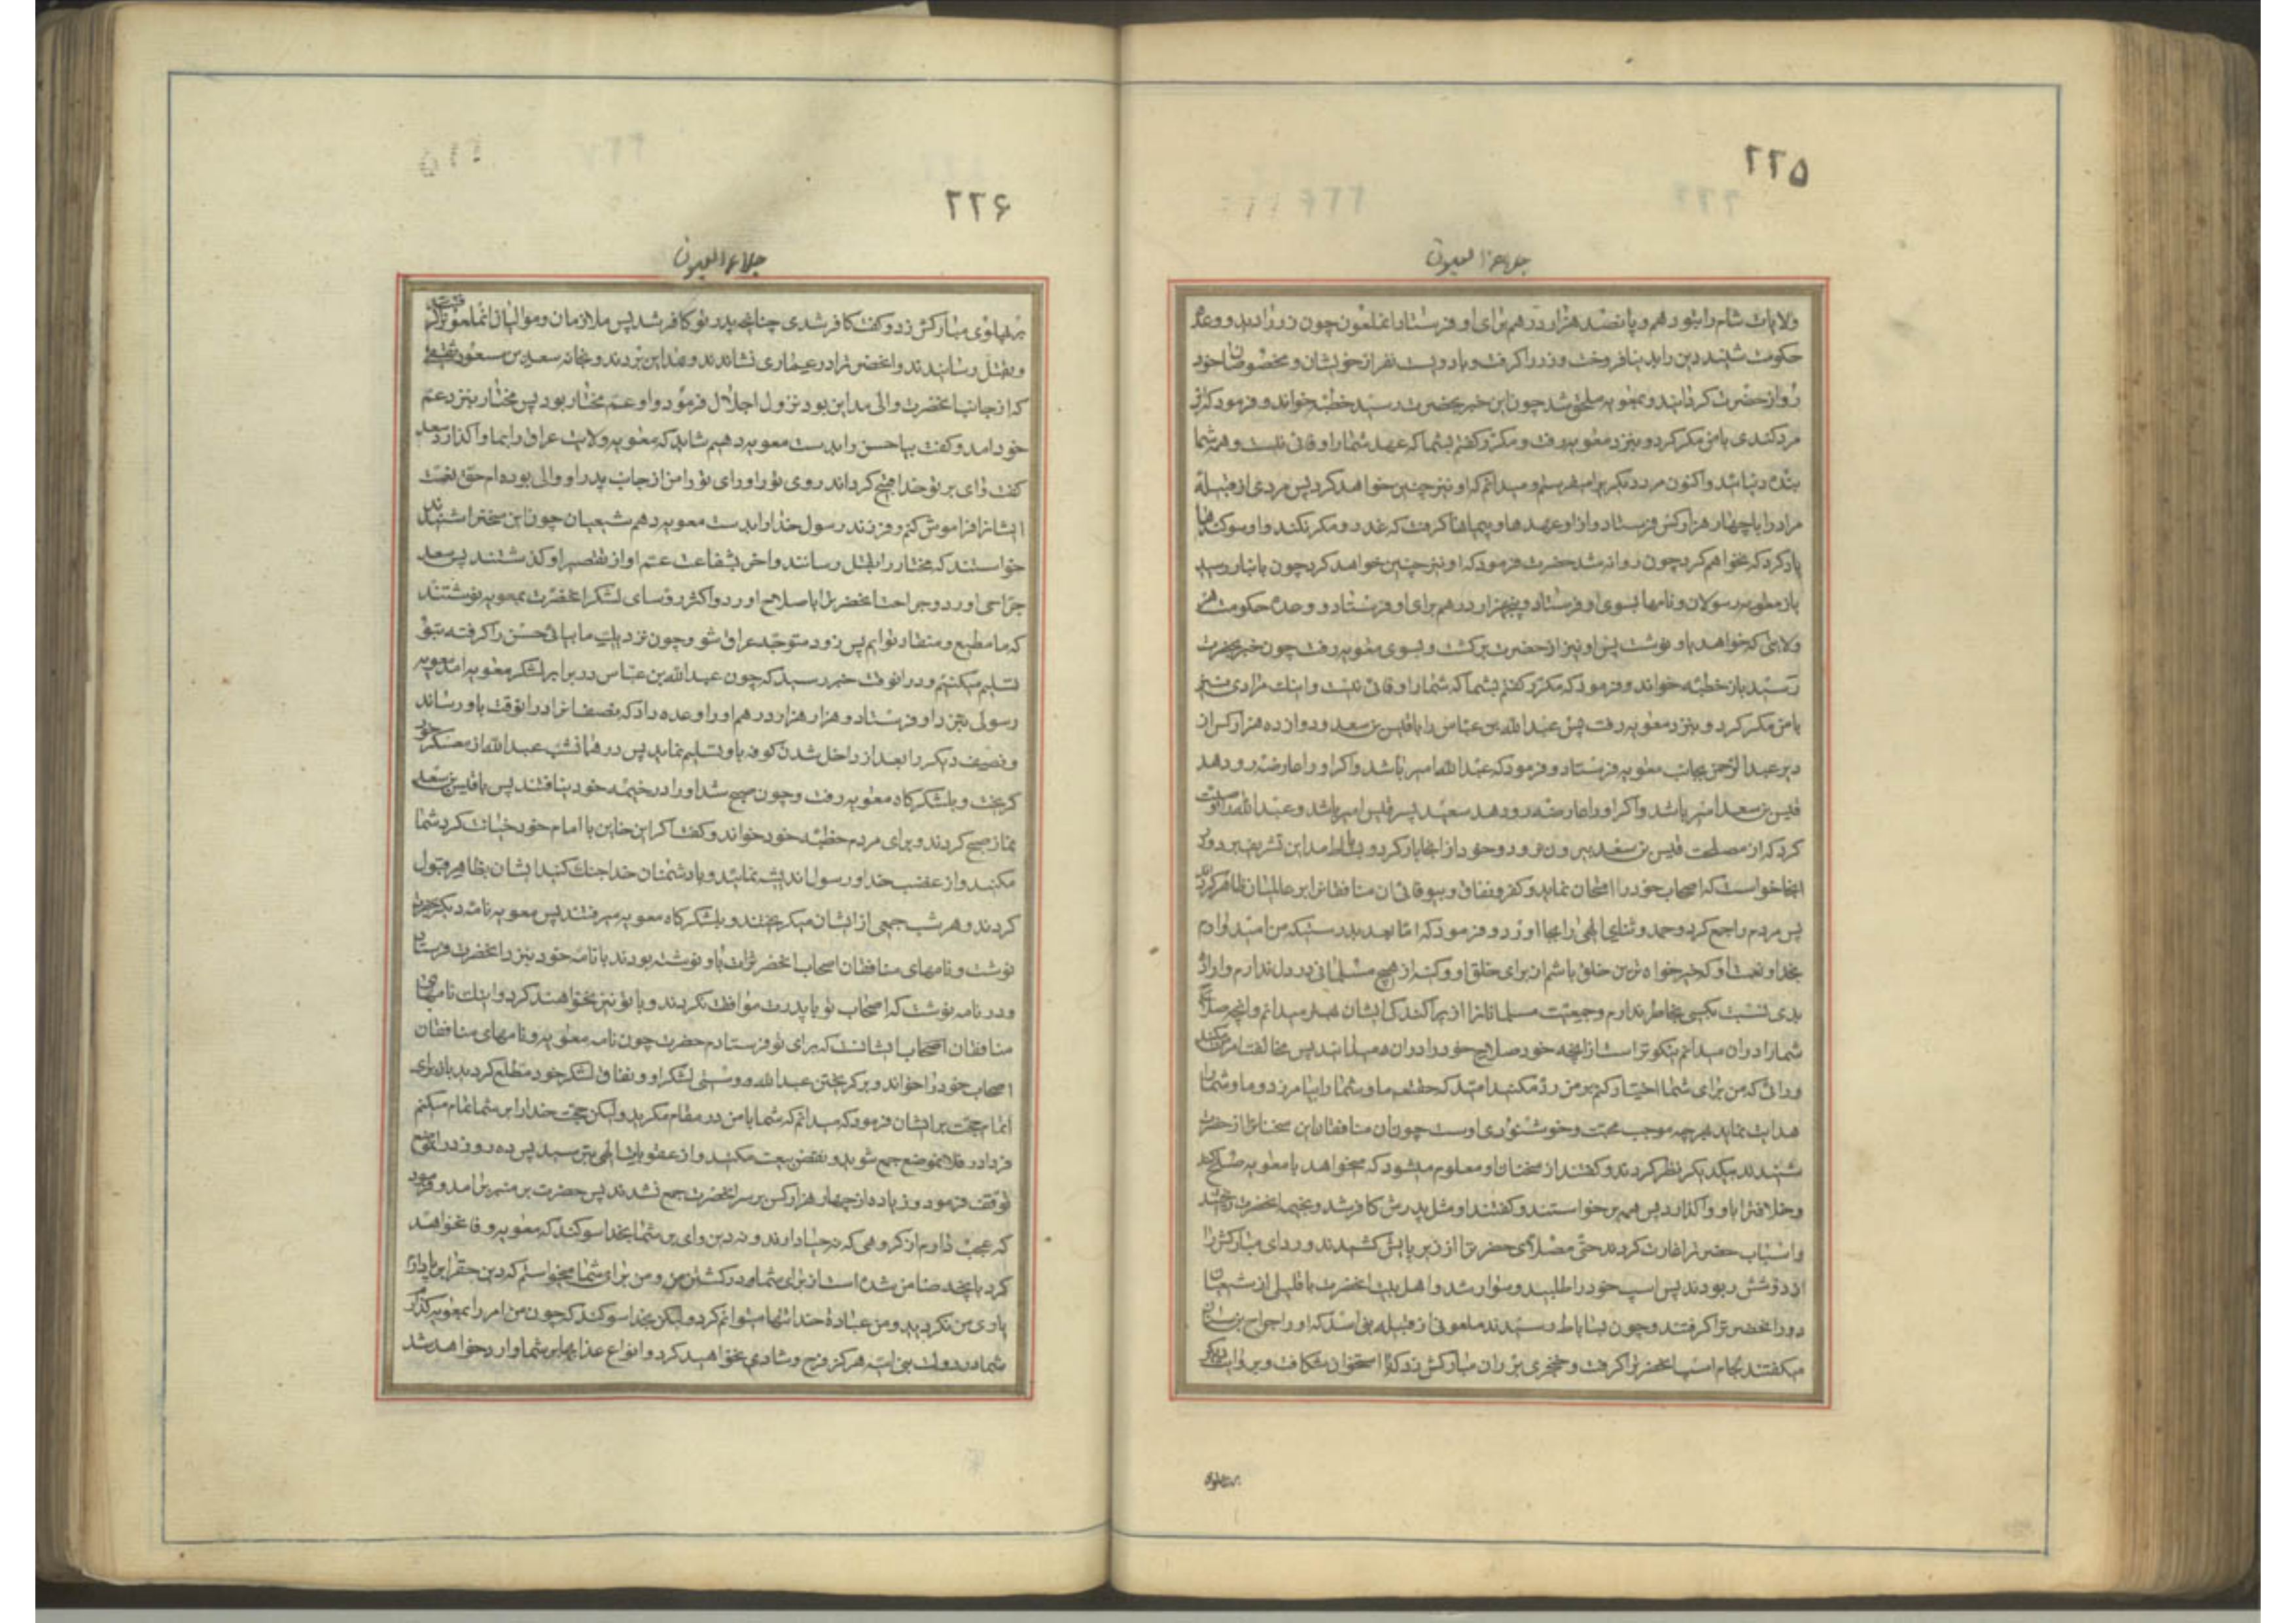 ۲۲۵
جلاء العیون
ولایات شام را بتو دهم و پانصد هزار درهم برای او فرستاد انملعون چون زر را دید و وعده
حکومت شنید دین را بدنیا فروخت و زر را کرفت و با دویست نفر از خویشان و مخصوصان خود
رو از حضرت کردانید و بمعویه ملحق شد چون این خبر بحضرت رسید خطبه خواند و فرمود که این
مرد کندی با من مکر کرد و بنزد معویه رفت و مکرر کفتم بشما که عهد شما را وفائی نیست و همه شما
بنده دنیائید و اکنون مرد دیکر را میفرستم و میدانم که او نیز چنین خواهد کرد پس مردی از قبیله
مراد را با چهار هزار کس فرستاد و از او عهدها و پیمانها کرفت که غدر و مکر نکند و او سوکندها
یاد کرد که نخواهم کرد چون روانه شد حضرت فرمود که او نیز چنین خواهد کرد چون بانبار رسید
باز معویه رسولان و نامها بسوی او فرستاد و پنجهزار درهم برای او فرستاد و وعده حکومت هر
ولایتی که خواهد باو نوشت پس او نیز از حضرت برکشت و بسوی معویه رفت چون خبر بحضرت
رسید باز خطبه خواند و فرمود که مکرر کفتم بشما که شما را وفائی نیست و اینک مرادی نیز
با من مکر کرد و بنزد معویه رفت پس عبد الله بن عباس را با قیس بن سعد و دوازده هزار کس از
دیر عبد الرحمن بجانب معویه فرستاد و فرمود که عبد الله امیر باشد و اکر او را عارضه رو دهد
قیس بن سعد امیر باشد و اکر او را عارضه رو دهد سعید پسر قیس امیر باشد و عبد الله را وصیت
کرد که از مصلحت قیس بن سعد بیرون نرود و خود از انجا بار کرد و بساباط مداین تشریف برد و در
انجا خواست که اصحاب خود را امتحان نماید و کفر و نفاق و بیوفائی ان منافقانرا بر عالمیان ظاهر کرداند
پس مردم را جمع کرد و حمد و ثنای الهی را بجا اورد و فرمود که اما بعد بدرستیکه من امیدوارم
بخدا و نعمت او که خیرخواه ترین خلق باشم از برای خلق او و کینه از هیچ مسلمانی در دل ندارم و اراده
بدی نسبت بکسی بخاطر ندارم و جمعیت مسلمانانرا از پراکندکی ایشان بهتر میدانم و انچه صلاح
شما را در ان میدانم نیکوتر است از انچه خود صلاح خود را در ان میدانید پس مخالفت امر من مکنید
و رائی که من برای شما اختیار کنم بر من رد مکنید امید که حقتعالی ما و شما را بیامرزد و ما و شما را
هدایت نماید بهرچه موجب محبت و خوشنودی اوست چون ان منافقان این سخنانرا از حضرت
شنیدند بیکدیکر نظر کردند و کفتند از سخنان او معلوم میشود که میخواهد با معویه صلح کند
و خلافترا باو واکذارد پس همه برخواستند و کفتند او مثل پدرش کافر شد و بخیمه انحضرت ریختند
و اسباب حضرترا غارت کردند حتی مصلای حضرترا از زیر پایش کشیدند و ردای مبارکشرا
از دوشش ربودند پس اسب خود را طلبید و سوار شد و اهل بیت انحضرت با قلیلی از شیعیان
دور انحضرترا کرفتند و چون بساباط رسیدند ملعونی از قبیله بنی اسد که او را جراح بن سنان
میکفتند لجام اسب انحضرترا کرفت و خنجری بر ران مبارکش زد که تا استخوان شکافت و بروایت دیکر
بر پهلوی
۲۲۶
جلاء العیون
بر پهلوی مبارکش زد و کفت کافر شدی چنانچه پدر تو کافر شد پس ملازمان و موالیان انملعون را کرفتند
و بقتل رسانیدند و انحضرترا در عماری نشاندند و بمداین بردند و بخانه سعد بن مسعود ثقفی
که از جانب انحضرت والی مداین بود نزول اجلال فرمود و او عم مختار بود پس مختار بنزد عم
خود امد و کفت بیا حسن را بدست معویه دهیم شاید که معویه ولایت عراق را بما واکذارد سعد
کفت وای بر تو خدا قبیح کرداند روی تو را و رای تو را من از جانب پدر او والی بوده ام حق نعمت
ایشانرا فراموش کنم و فرزند رسول خدا را بدست معویه دهم شیعیان چون این سخنرا شنیدند
خواستند که مختار را بقتل رسانند و اخر بشفاعت عم او از تقصیر او کذشتند پس سعد
جراحی اورد و جراحت انحضرترا باصلاح اورد و اکثر رؤسای لشکر انحضرت بمعویه نوشتند
که ما مطیع و منقاد توایم پس زود متوجه عراق شو و چون نزدیک ما بیائی حسن را کرفته بتو
تسلیم میکنیم و در انوقت خبر رسید که چون عبد الله بن عباس در برابر لشکر معویه امد معویه
رسولی بنزد او فرستاد و هزار هزار درهم او را وعده داد که نصف انرا در انوقت باو رساند
و نصف دیکر را بعد از داخل شدن کوفه باو تسلیم نماید پس در همانشب عبد الله از معسکر خود
کریخت و بلشکرکاه معویه رفت و چون صبح شد او را در خیمه خود نیافتند پس با قیس بن سعد
نماز صبح کردند و برای مردم خطبه خود خواند و کفت اکر این خاین با امام خود خیانت کرد شما
مکنید و از غضب خدا و رسول اندیشه نمائید و با دشمنان خدا جنک کنید ایشان بظاهر قبول
کردند و هر شب جمعی از ایشان میکریختند و بلشکرکاه معویه میرفتند پس معویه نامه دیکر بحضرت
نوشت و نامهای منافقان اصحاب انحضرترا که باو نوشته بودند با نامه خود بنزد انحضرت فرستاد
و در نامه نوشت که اصحاب تو با پدرت موافقت نکردند و با تو نیز نخواهند کرد و اینک نامهای
منافقان اصحاب ایشانست که برای تو فرستادم حضرت چون نامه معویه و نامهای منافقان
اصحاب خود را خواند و بر کریختن عبد الله و سستی لشکر او و نفاق لشکر خود مطلع کردید باز برای
اتمام حجت بر ایشان فرمود که میدانم که شما با من در مقام مکرید ولیکن حجت خدا را بر شما تمام میکنم
فردا در فلانموضع جمع شوید و نقض بیعت مکنید و از عقوبات الهی بترسید پس ده روز در انموضع
توقف فرمود و زیاده از چهار هزار کس بر سر انحضرت جمع نشدند پس حضرت بر منبر برامد و فرمود
که عجب دارم از کروهی که نه حیا دارند و نه دین وای بر شما بخدا سوکند که معویه وفا نخواهد
کرد بانچه ضامن شده است از برای شما در کشتن من و من برای شما میخواستم که دین حق را برپا دارم
یاری من نکردید و من عبادة خدا تنها میتوانم کرد ولیکن بخدا سوکند که چون من امر را بمعویه کذارم
شما در دولت بنی امیه هرکز فرح و شادی نخواهید کرد و انواع عذابها بر شما وارد خواهد شد